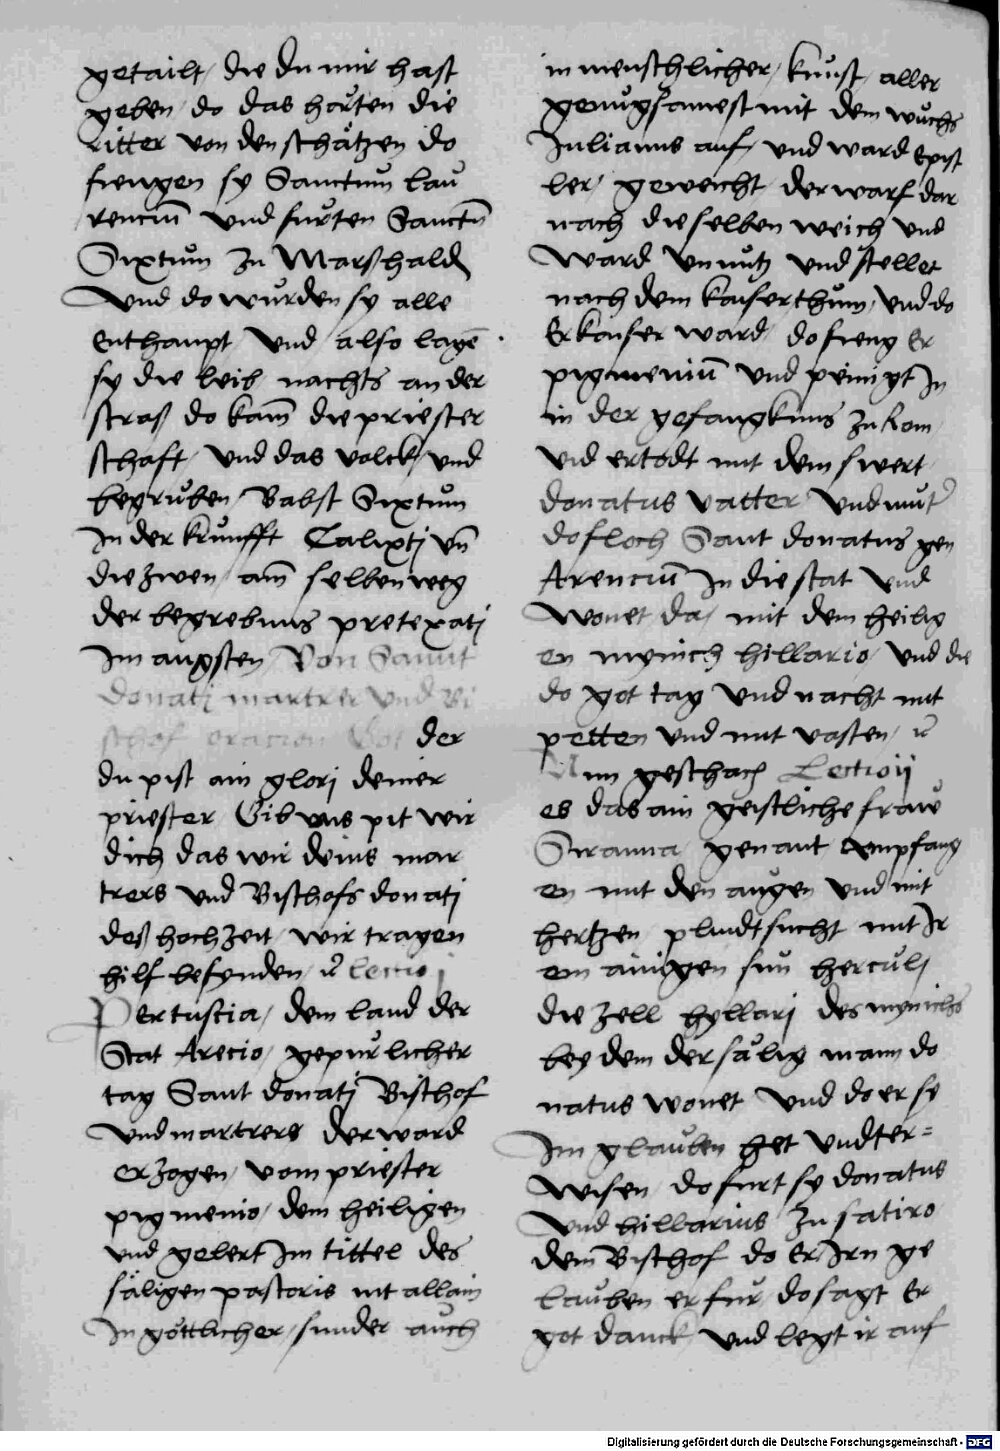 getailt / die du mir hast
geben / do das horten die
ritter von den schätzen do
fiengen sy Sanctum lau
renciū und furten Sanctū
Sixtum zu Marßhald
Und do wurden sy alle
enthaupt / Und also lagē
sy die leib / nachts an der
straß do kam̄ die priester
schaft / und das volck / und
begruben / Babst Sixtum
In der krunfft Calixtj vn̄
die zwen / am̄ selben weg
der begrebnus pretexatj
Im augsten / Von Sannt
donatj martrer und Bi
schof oracion Got der
du pist ain glorj deiner
priester / Gib uns pit wir
dich das wir deins mar
trers und Bischofs donatj
deß hochzeit / wir tragen
hilf besynden / ꝛc lectio j
Pertuscia / dem land der
Stat Arecio / gepurlicher
tag Sant donatj Bischof
und martrers der ward
erzogen / vom priester
pigmenio / dem heiligen
und gelert Im tittel des
säligen pastoris nit allain
In göttlicher / sunder auch
in menschlicher / kunst / aller
genugsamest mit dem wuchs
Julianus auf / und ward Epist
ler / geweicht / der warf dar
nach dieselben weich und
ward unnutz und stellet
nach dem kaiserthum / und do
Er kaiser ward / do fieng Er
pigmeniū und peinigt In
in der gefangknus zu Rom /
vnd ertodt mit dem swert /
donatus vatter und mut̄
do floch Sant donatus gen
Arenciū In die stat und
wonet da / mit dem heilig
en mynich hillario / und die
do got tag und nacht mit
petten und mit vasten / ꝛc
Nun geschach Lectio ij
es das ain geistliche fraw
Siranna / genant empfang
en mit den augen und mit
hertzen / plindtsucht mit Ir
em ainigen sun herculj
die zell hyllarj des mynichs
bey dem der sälig mann do
natus wonet und do er sy
Im glauben het undter=
wisen / do furt sy donatus
und hillarius zu satiro
dem Bischof do Er Irn ge
lauben erfur / do sagt Er
got danck / und legt ir auf
Digitalisierung gefördert durch die Deutsche Forschungsgemeinschaft - DFG